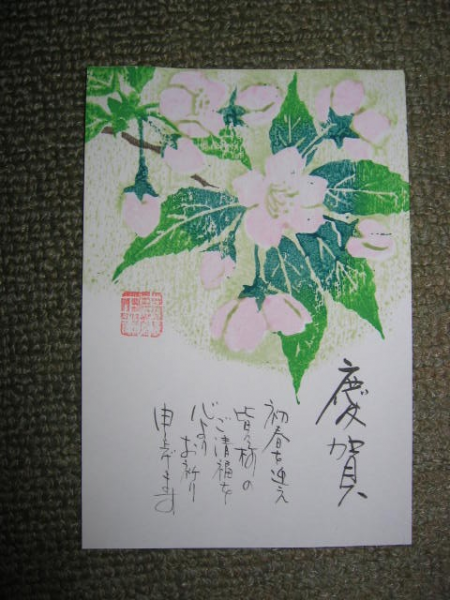 慶賀
初春を迎え
皆々様の
ご清福を
心より
お祈り
申し上げます